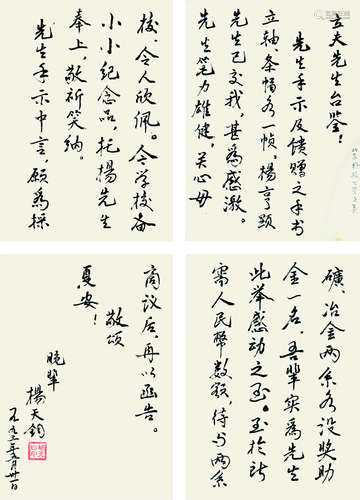 立夫先生台鉴！
先生手示及馈赠之手书
立轴、条幅各一帧，楊亨顕
先生已交我，甚為感激。
先生笔力雄健，关心母
校，令人欣佩。今学校备
小小纪念品，托楊先生
奉上，敬祈笑纳。
先生手示中言，願為採
礦、冶金两系各设奖助
金一名，吾辈实為先生
此举感动之至。至於所
需人民幣数额，待与两系
商议后，再以函告。
敬颂
夏安！
晚辈
楊天鈞